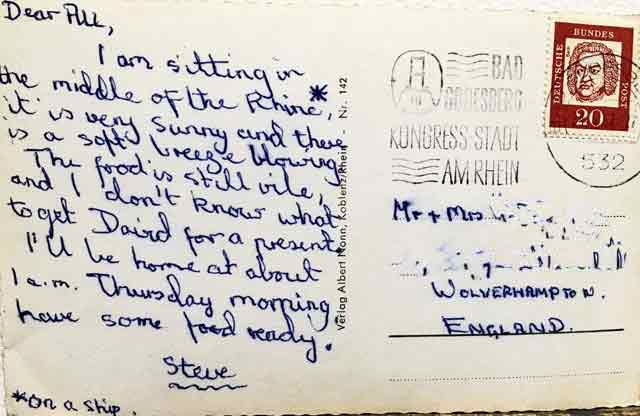 Dear All,
I am sitting in
the middle of the Rhine,*
it is very sunny and there
is a soft breeze blowing.
The food is still vile,
and I don't know what
to get Daird for a present.
I'll be home at about
1 a.m. Thursday morning,
have some food ready.
Steve
*On a ship.
Verlag Albert Monn, Koblenz/Rhein - Nr. 142
BAD
GODESBERG
KONGRESS-STADT
AM RHEIN
DEUTSCHE BUNDESPOST
20
532
Mr + Mrs
WOLVERHAMPTON.
ENGLAND.